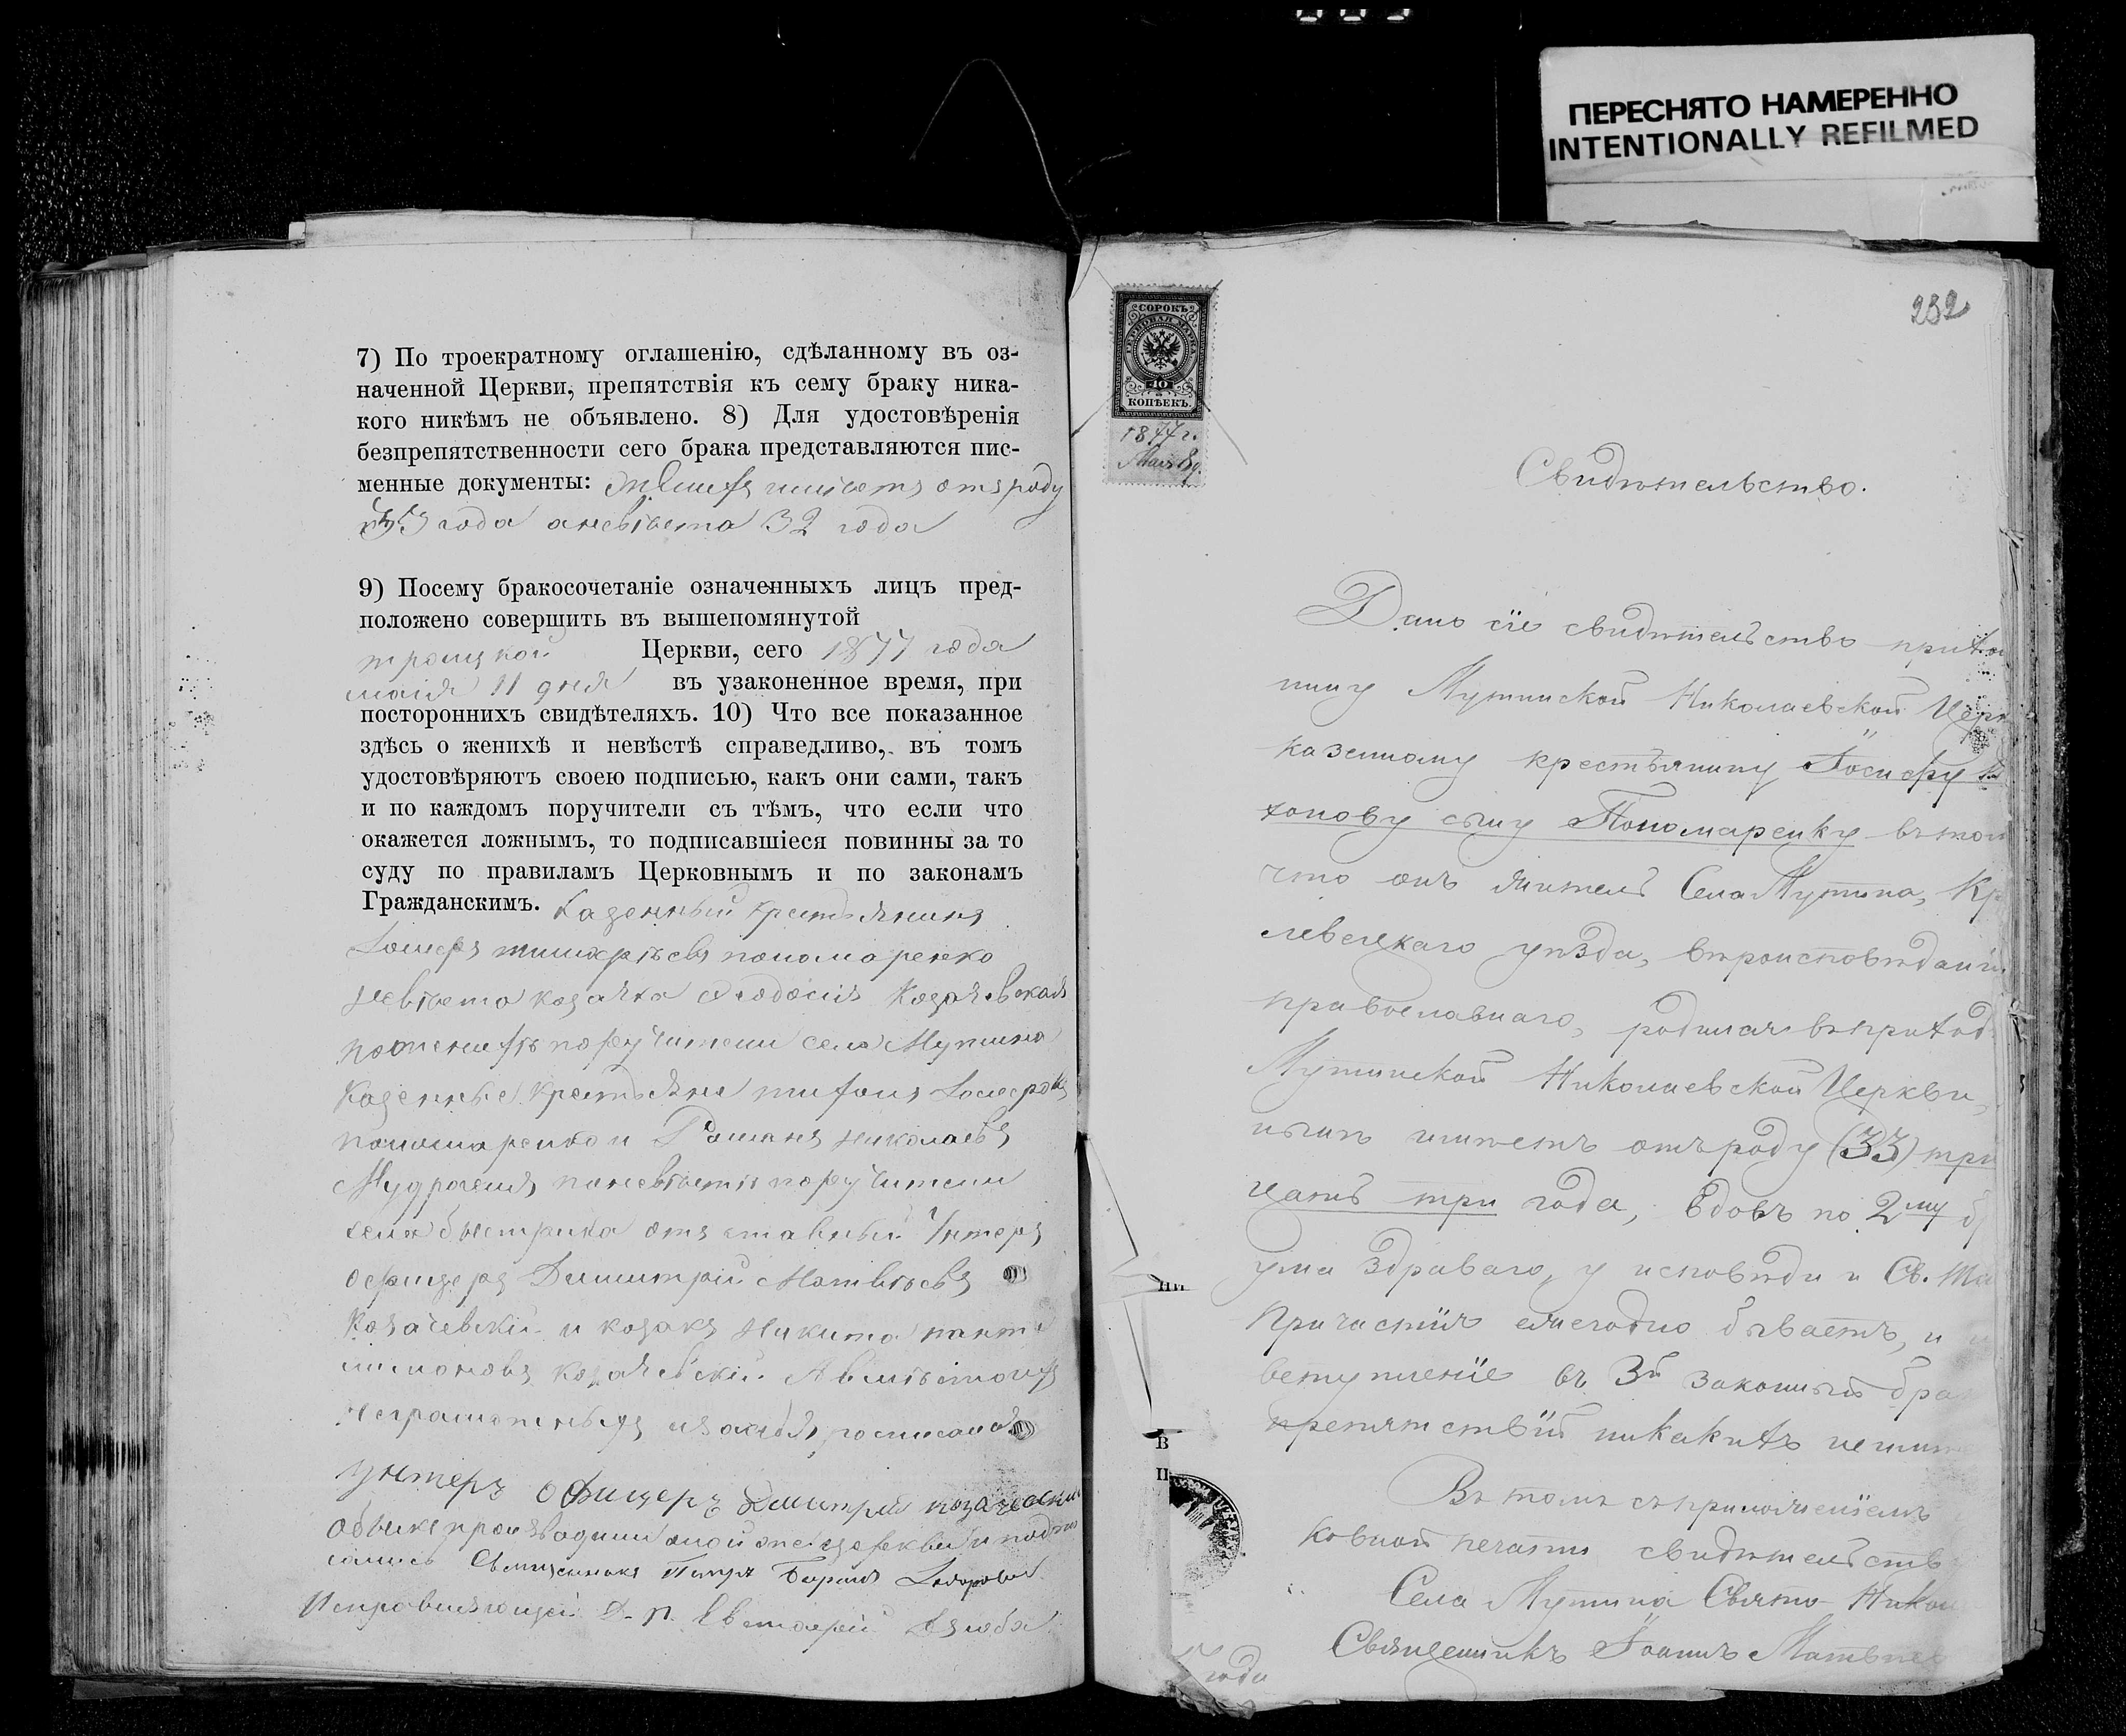 ПЕРЕСНЯТО НАМЕРЕННО
INTENTIONALLY REFILMED
7) По троекратному оглашенію, сдѣланному въ оз-
наченной Церкви, препятствія къ сему браку ника-
кого никѣмъ не объявлено. 8) Для удостовѣренія
безпрепятственности сего брака представляются пис-
менные документы: женихъ имѣетъ отъ роду
33 года а невѣста 32 года
9) Посему бракосочетаніе означенныхъ лицъ пред-
положено совершить въ вышепомянутой
троицкой Церкви, сего 1877 года
маія 11 дня въ узаконенное время, при
постороннихъ свидѣтеляхъ. 10) Что все показанное
здѣсь о женихѣ и невѣстѣ справедливо, въ томъ
удостовѣряютъ своею подписью, какъ они сами, такъ
и по каждомъ поручители съ тѣмъ, что если что
окажется ложнымъ, то подписавшіеся повинны за то
суду по правиламъ Церковнымъ и по законамъ
Гражданскимъ. казенный крестьянинъ
пономаренко
невѣста козачка Феодосія Козачевская
по женихѣ поручители села Мутина
казенные крестьяне
пономаренко и Романъ николаевъ
по невѣстѣ поручители
села быстрика отъставный Унтеръ
офицеръ Димитрій Матвѣевъ
Козачевскій и козакъ Никита
козачевскій
неграмотныхъ и за себя росписался
унтеръ офицеръ Дмитрій козачевскій
Обыскъ производили той же церкви и подпи
сались Священникъ Петръ
Исправляющій Д. п. Евстафій Дзюба
232
СОРОКЪ
ГЕРБОВАЯ МАРКА
40
КОПѢЕКЪ
1877 г.
Свидѣтельство.
Дано сіе свидѣтельство прихо
нину Мутинской Николаевской Церк
казенному крестьянину Іосифу
хонову сыну Пономаренку въ том
что онъ житель Села Мутина, Кр
левецкаго уѣзда, вѣроисповѣданія
православнаго, родился въ приход
Мутинской Николаевской Церкви,
нынѣ имѣетъ отъ роду (33) три
цать три года, вдовъ по 2му б
ума здраваго, у исповѣди и Св. Та
Причастія ежегодно бываетъ, и
вступленіе въ 3й законный бра
препятствій никакихъ неимѣ
Въ томъ съ приложеніемъ
ковной печати свидѣтельств
Села Мутина Свято-Никол
Священникъ Іоаннъ Матвѣев
года